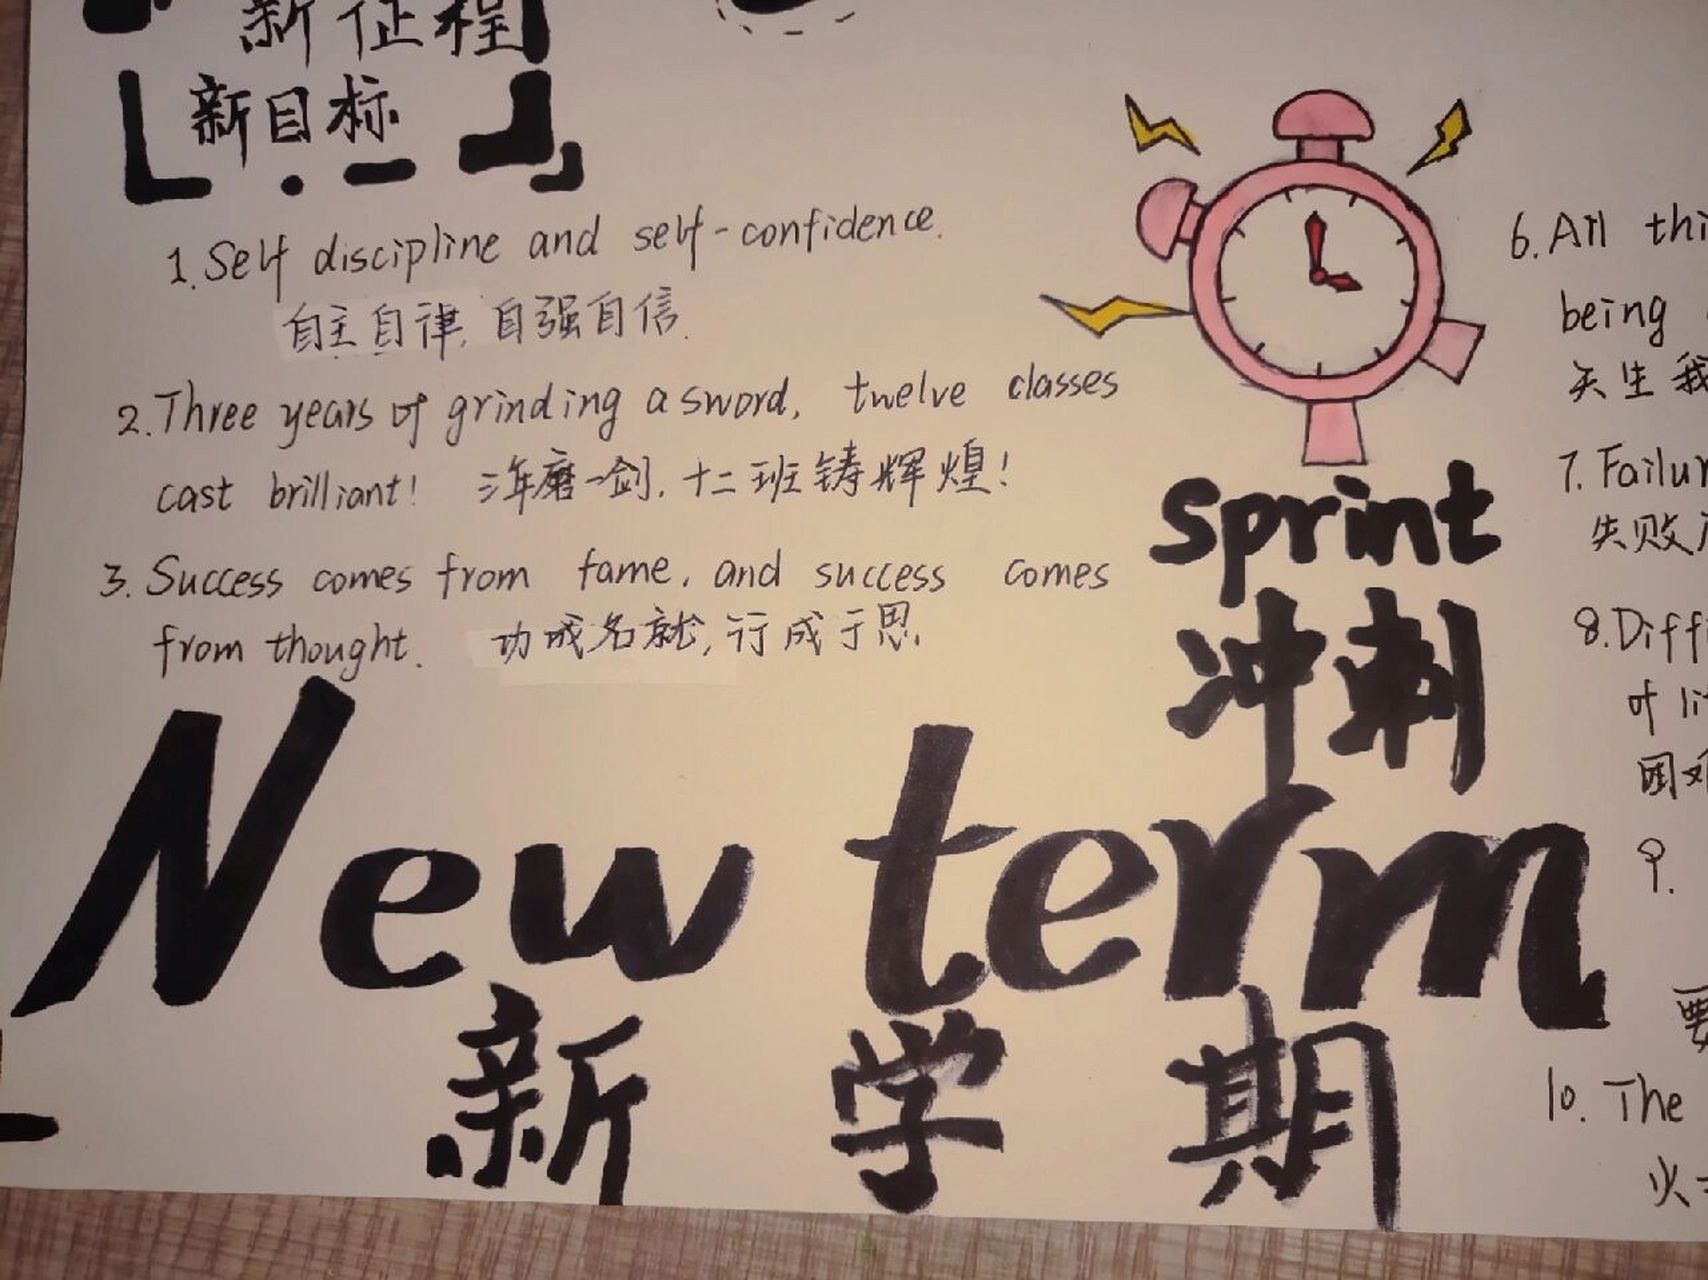 新征程
新目标
1. Self discipline and self-confidence.
自主自律, 自强自信.
2. Three years of grinding a sword, twelve classes
cast brilliant! 三年磨一剑, 十二班铸辉煌!
3. Success comes from fame, and success comes
from thought. 功成名就, 行成于思.
sprint
冲刺
New term
新学期
6. All thi
being
天生我
7. Failur
失败
8. Diff
of li
困难
9.
要
10. The
火